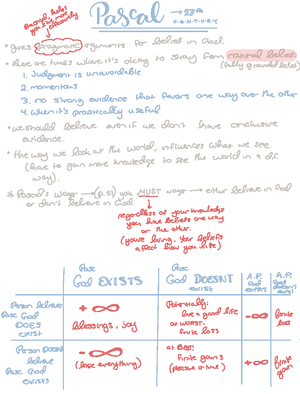 Pascal → 17th
CENTURY
(practical, helps
you live more
effectively
* gives pragmatic arguments for belief in God
* there are times where it's okay to stray from rational belief
(fully grounded belief)
1. Judgment is unavoidable
2. momentous
3. no strong evidence that favors one way over the other
4. When it's practically useful
* we should believe even if we don't have conclusive
evidence.
* the way we look at the world, influences what we see
(have to gain more knowledge to see the world in a dif.
way).
* Pascal's Wager → (p.51) you MUST wager → either believe in God
or don't believe in God
regardless of your knowledge
you have beliefs one way
or the other.
(you're living, your beliefs
affect how you live)
God EXISTS
God DOESN'T
EXIST
A.P.
God
EXISTS
A.P.
God
doesn't
Person believes
God
DOES
EXIST
+ ∞
blessings, joy
Potentially:
live a good life
at WORST:
finite loss
-∞
finite
loss
Person DOESN'T
believe
God
EXISTS
- ∞
(lose everything)
at BEST:
finite gains
(pleasure a-time)
+∞
finite
gain